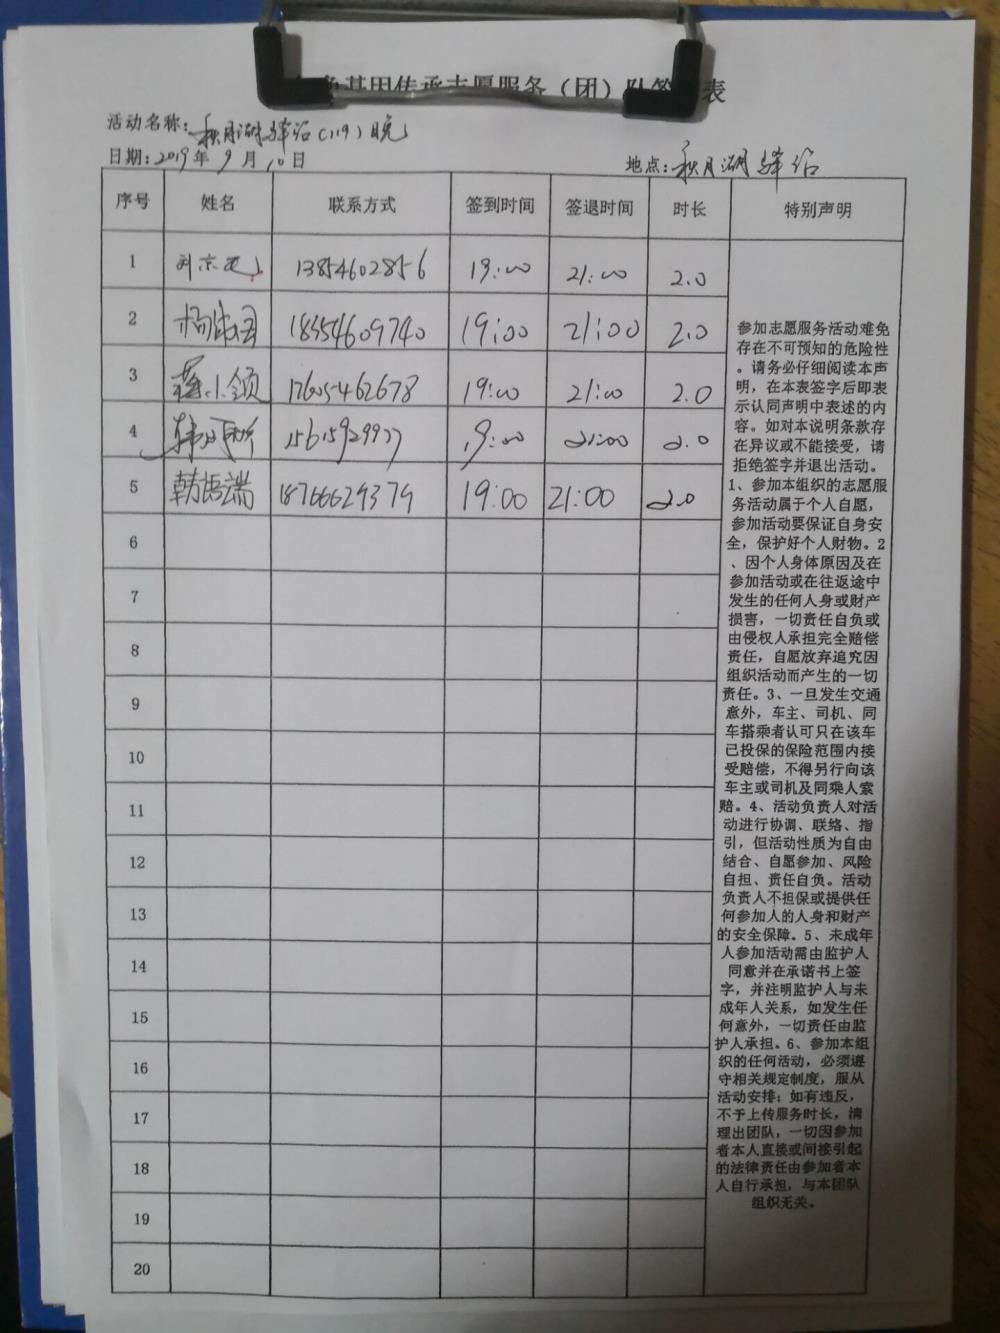 色基因传承志愿服务（团）队签 表
活动名称：秋月湖驿站（119）晚
日期：2019年9月10日 地点：秋月湖驿站
序号 姓名 联系方式 签到时间 签退时间 时长 特别声明
1 13854602856 19:00 21:00 2.0
2 18354609740 19:00 21:00 2.0
3 小领 17605462678 19:00 21:00 2.0
4 15615929977 19:00 21:00 2.0
5 韩语端 18766629379 19:00 21:00 2.0
6
7
8
9
10
11
12
13
14
15
16
17
18
19
20
参加志愿服务活动难免
存在不可预知的危险性
。请务必仔细阅读本声
明，在本表签字后即表
示认同声明中表述的内
容。如对本说明条款存
在异议或不能接受，请
拒绝签字并退出活动。
1、参加本组织的志愿服
务活动属于个人自愿，
参加活动要保证自身安
全，保护好个人财物。2
、因个人身体原因及在
参加活动或在往返途中
发生的任何人身或财产
损害，一切责任自负或
由侵权人承担完全赔偿
责任，自愿放弃追究因
组织活动而产生的一切
责任。3、一旦发生交通
意外，车主、司机、同
车搭乘者认可只在该车
已投保的保险范围内接
受赔偿，不得另行向该
车主或司机及同乘人索
赔。4、活动负责人对活
动进行协调、联络、指
引，但活动性质为自由
结合、自愿参加、风险
自担、责任自负。活动
负责人不担保或提供任
何参加人的人身和财产
的安全保障。5、未成年
人参加活动需由监护人
同意并在承诺书上签
字，并注明监护人与未
成年人关系，如发生任
何意外，一切责任由监
护人承担。6、参加本组
织的任何活动，必须遵
守相关规定制度，服从
活动安排；如有违反，
不予上传服务时长，清
理出团队，一切因参加
者本人直接或间接引起
的法律责任由参加者本
人自行承担，与本团队
组织无关。